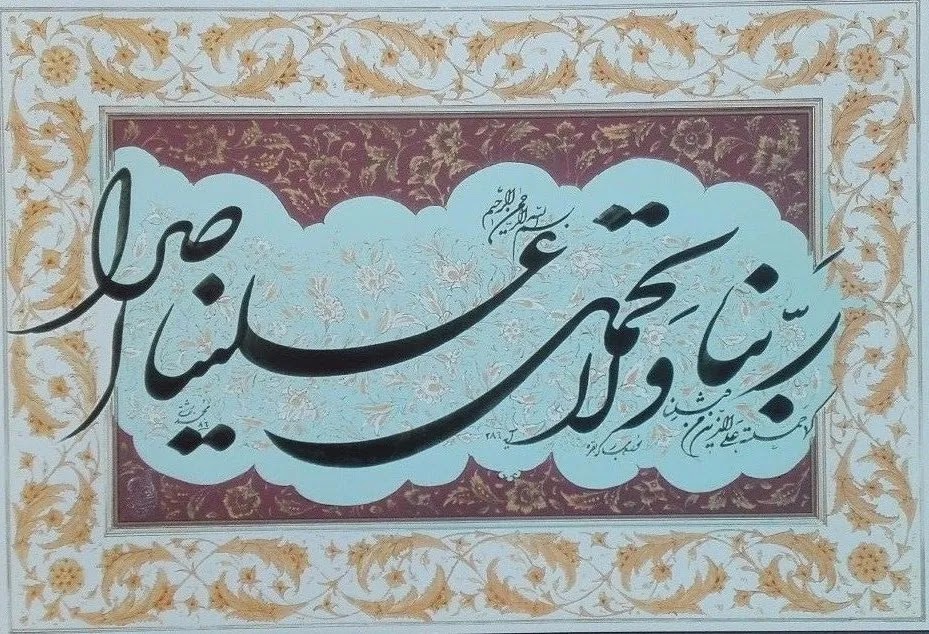 بسم الله الرحمن الرحیم
ربّنا وَلا تحمل علینا اصرا
کما حملته عَلَی الذین من قبلنا
سوره مبارکه بقره
آیه ۲۸۶